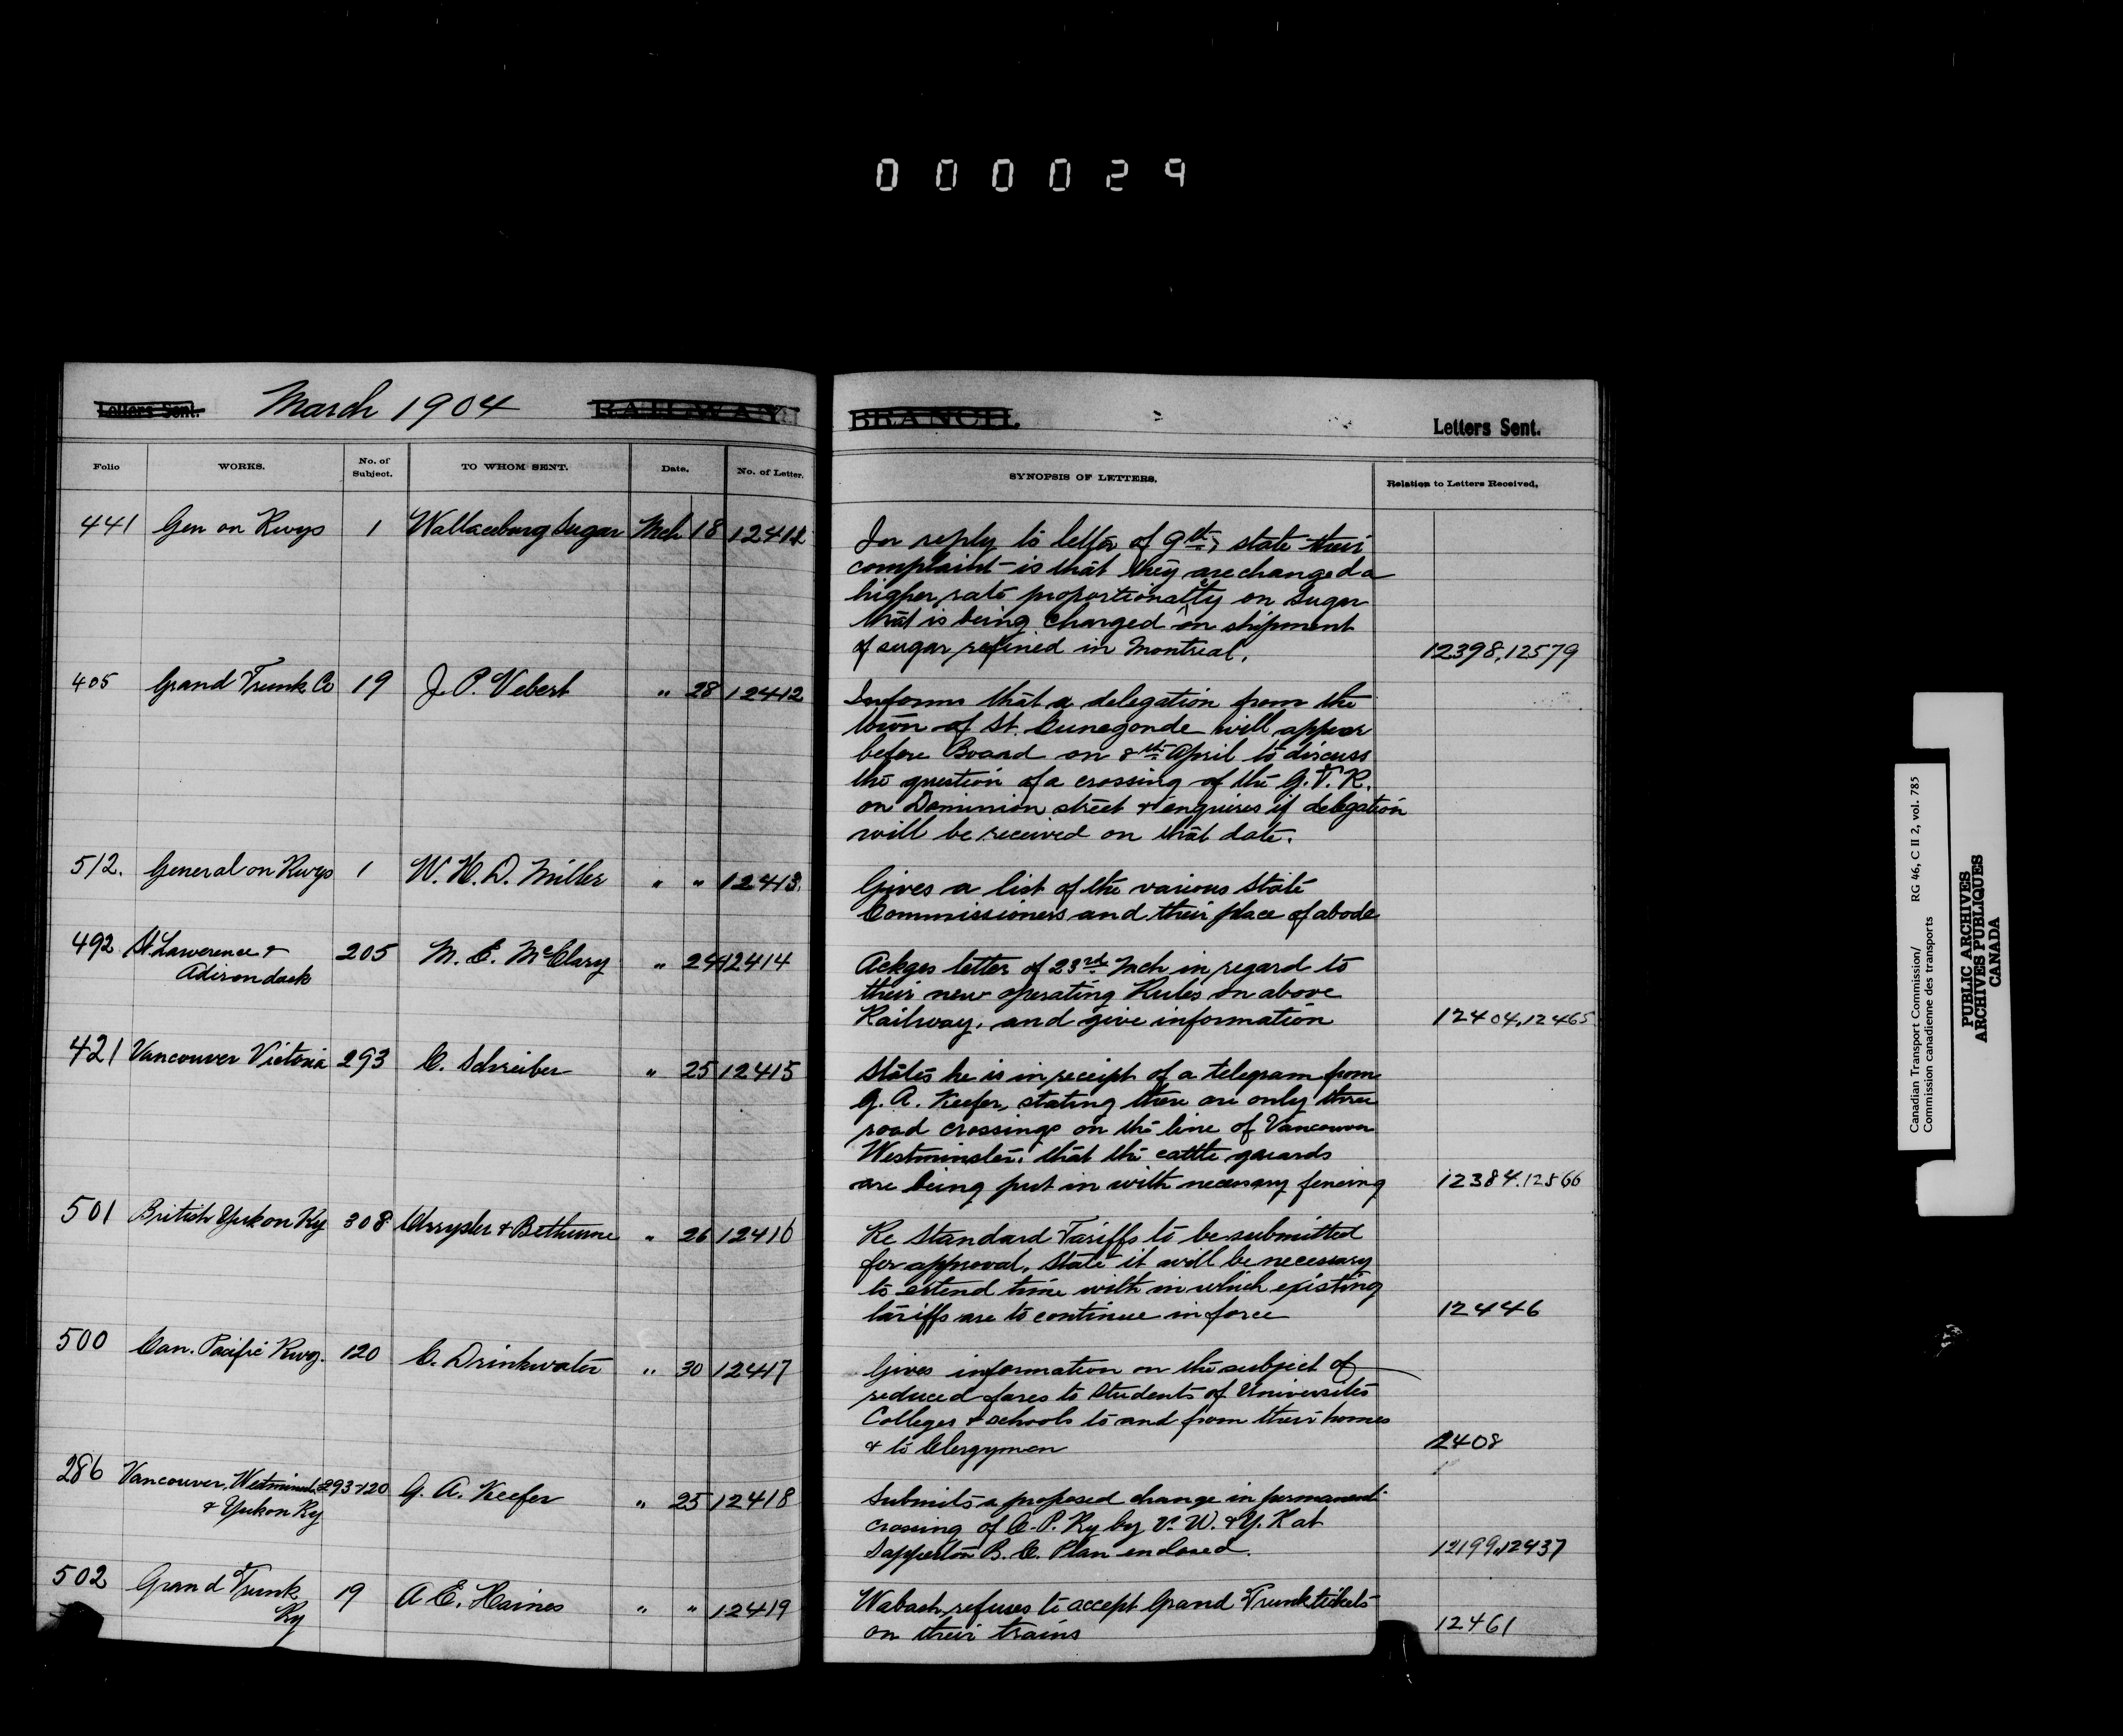 0 0 0 0 2 9
Letters Sent. March 1904 RAILWAY BRANCH. Letters Sent.
Folio WORKS. No. of Subject. TO WHOM SENT. Date. No. of Letter. SYNOPSIS OF LETTERS. Relation to Letters Received.
441 Gen on Rwys 1 Wallaceburg Sugar Mch 18 12411
In reply to letter of 9th, state their
complaint is that they are changed a
higher rate proportionally on Sugar
that is being charged on shipment
of sugar refined in Montreal. 12398,12579
405 Grand Trunk Co 19 J. P. Vebert " 28 12412
Informs that a delegation from the
town of St. Cunegonde will appear
before Board on 8th April to discuss
the question of a crossing of the G.T.R.
on Dominion street & enquires if delegation
will be received on that date.
512. General on Rwys 1 W. H. D. Miller " " 12413
Gives a list of the various State
Commissioners and their place of abode
492 St Lawerence & Adirondack 205 M. E. McClary " 24 12414
Ackges letter of 23rd Mch in regard to
their new operating Rules on above
Railway, and give information 12404,12465
421 Vancouver Victoria 293 C. Schreiber " 25 12415
States he is in receipt of a telegram from
G. A. Keefer, stating there are only three
road crossings on the line of Vancouver
Westminster, that the cattle guards
are being put in with necessary fencing 12384.12566
501 British Yukon Ry 308 Chrysler & Bethune " 26 12416
Re Standard Tariffs to be submitted
for approval, State it will be necessary
to extend time with in which existing
tariffs are to continue in force 12446
500 Can. Pacific Rwy. 120 C. Drinkwater " 30 12417
Gives information on the subject of
reduced fares to Students of Universites
Colleges & schools to and from their homes
& to Clergymen 12408
286 Vancouver, Westminster & Yukon Ry 293-120 G. A. Keefer " 25 12418
Submits a proposed change in permanent
crossing of C. P. Ry by V. W. & Y. R at
Sapperton B. C. Plan enclosed. 12199,12437
502 Grand Trunk Ry 19 A E. Haines " " 12419
Wabash refuses to accept Grand Trunk tickets
on their trains 12461
Canadian Transport Commission/ RG 46, C II 2, vol. 785
Commission canadienne des transports
PUBLIC ARCHIVES
ARCHIVES PUBLIQUES
CANADA